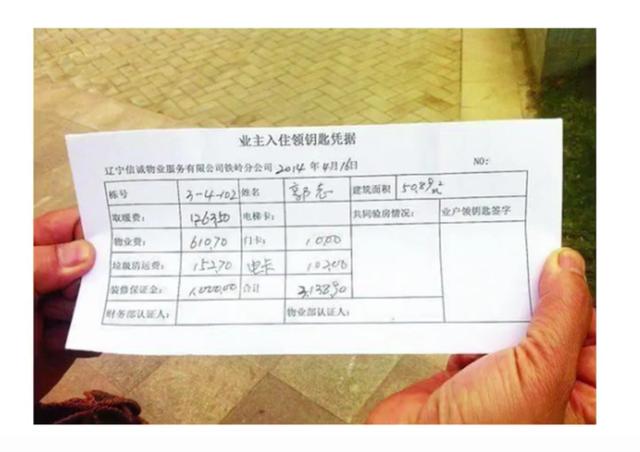 业主入住领钥匙凭据
辽宁信诚物业服务有限公司铁岭分公司 2014年4月16日 NO:
栋号 3-4-102 姓名 郭志 建筑面积 50.89m²
取暖费: 1263.50 电梯卡: 共同验房情况: 业户领钥匙签字
物业费: 610.70 门卡: 10.00
垃圾清运费: 152.70 电卡 102.00
装修保证金: 1,000.00 合计 3,138.90
财务部认证人: 物业部认证人: